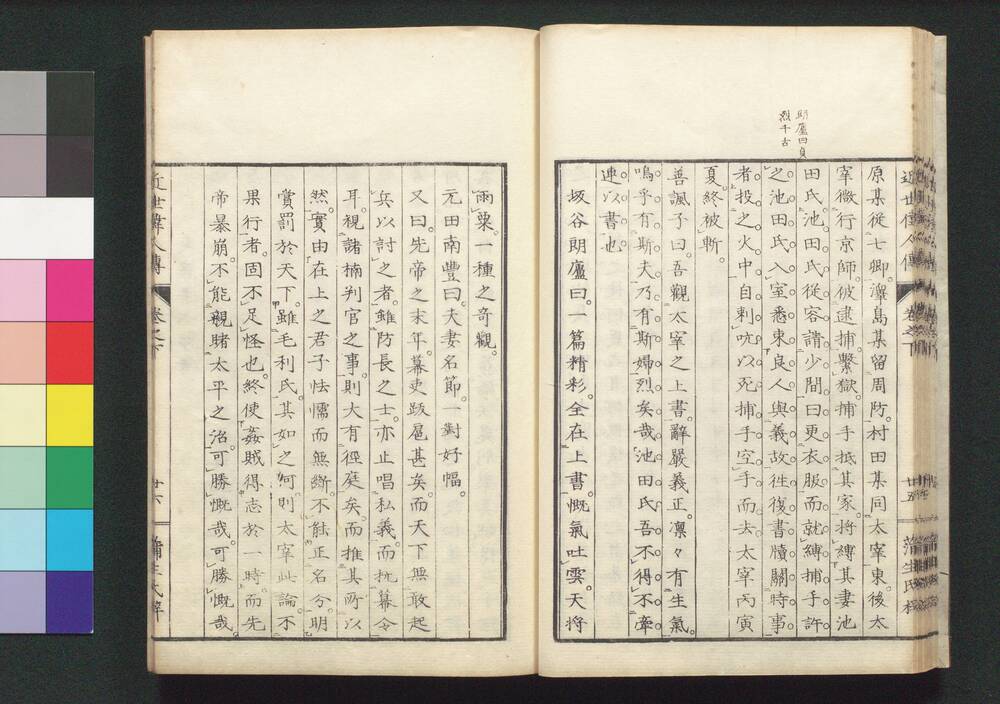 朗廬曰貞
烈千古
近世偉人傳
卷之下
廿五
蒲生氏梓
原某從七卿。灃島某留周防。村田某同太宰東。後太
宰微行京師。彼逮捕繫獄。捕手抵其家。將縛其妻池
田氏。池田氏從容請少間曰更衣服而就縛。捕手許
之。池田氏入室。悉束良人與義故往復書牘關時事
者。投之火中。自刺吭以死。捕手空手而去。太宰丙寅
夏。終被斬。
善諷子曰。吾觀太宰之上書。辭嚴義正。凛々有生氣。
嗚乎有斯夫。乃有斯婦。烈矣哉。池田氏。吾不得不牽
連以書也。
坂谷朗廬曰。一篇精彩。全在上書。慨氣吐雲。天將
雨粟。一種之奇觀。
元田南豐曰。夫妻名節。一對好幅。
又曰。先帝之末年。幕吏跋扈甚矣。而天下無敢起
兵以討之者。雖防長之士。亦止唱私義。而抗幕令
耳。視諸楠判官之事。則大有徑庭矣。而推其所以
然。實由在上之君子怯懦而無斷。不能正名分。明
賞罰於天下。雖毛利氏。其如之何。則太宰此論。不
果行者。固不足怪也。終使姦賊得志於一時。而先
帝暴崩。不能親睹太平之治。可勝慨哉。可勝慨哉。
近世偉人傳
卷之下
廿六
蒲生氏梓